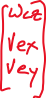 wcz
vex
vey